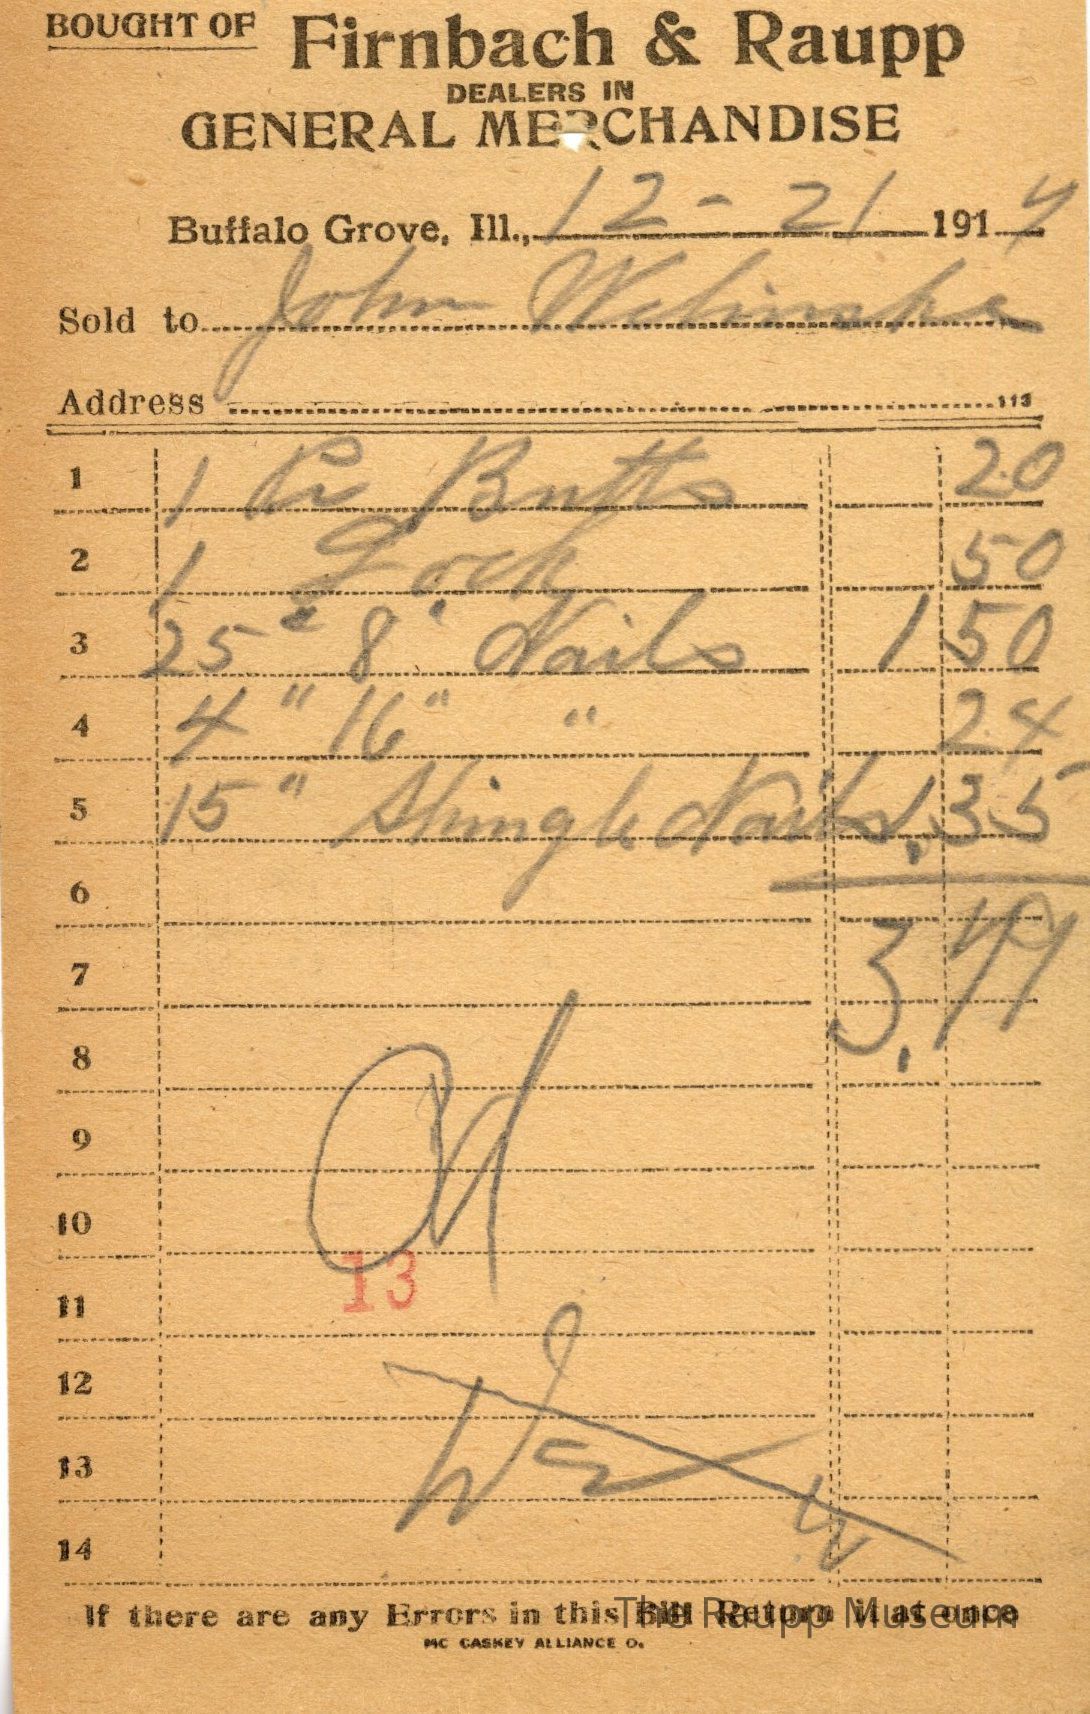 BOUGHT OF Firnbach & Raupp
DEALERS IN
GENERAL MERCHANDISE
Buffalo Grove, Ill., 12 - 21 191
Sold to John
Address 113
1 1 Pr Butts 20
2 1 Lock 50
3 25 # 8 " Nails 1 50
4 4 " 16 " " 24
5 15 " Shingle Nails 1.35
6
7 3.79
8
9
10
13
11
12
13
14
If there are any Errors in this Bill Return it at once
The Raupp Museum
MC CASKEY ALLIANCE O.